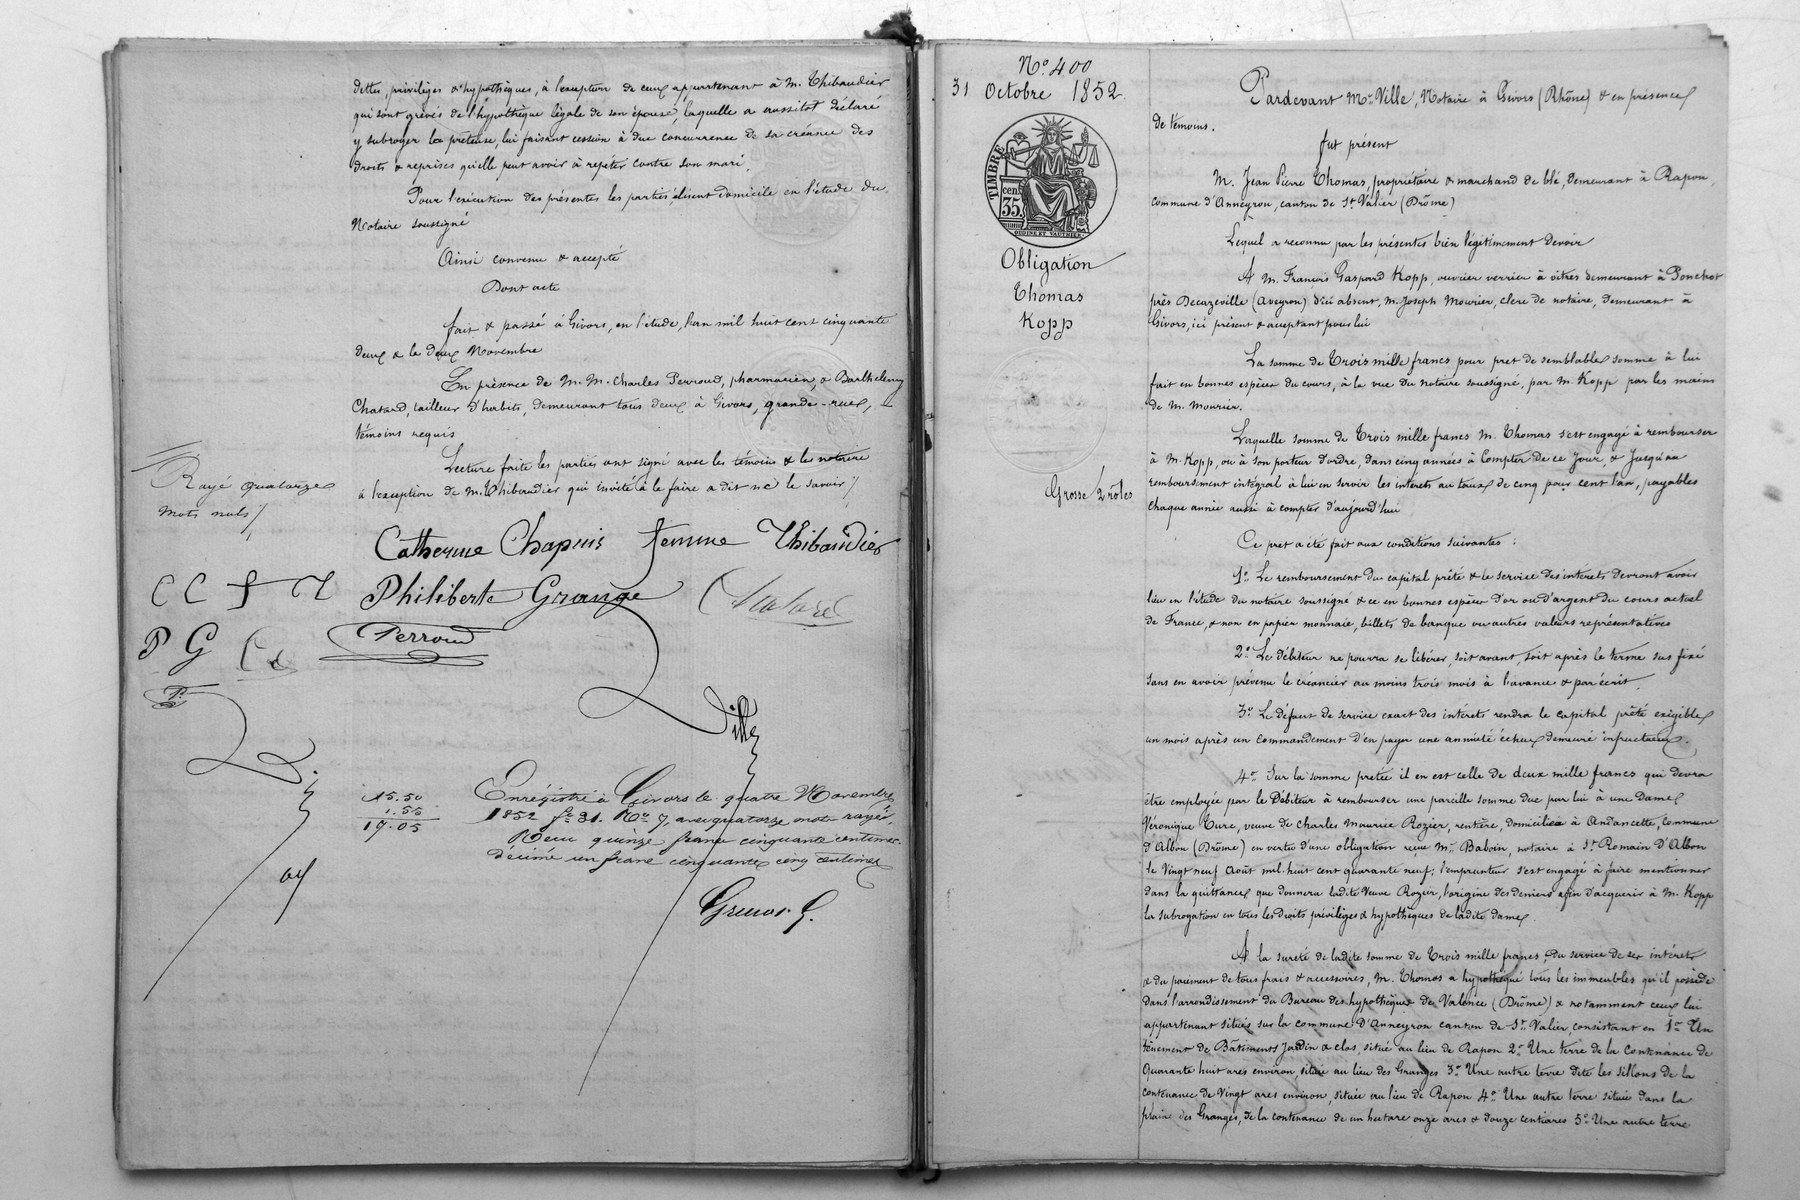 dettes, privilèges & hypothèques, à l'exception de ceux appartenant à M. Thibaudier
qui sont grevés de l'hypothèque légale de son épouse, laquelle a aussitot déclaré
y subroger la prêteuse, lui faisant cession à due concurrence de sa créance des
droits & reprises qu'elle peut avoir à répéter contre son mari.
Pour l'exécution des présentes les parties élisent domicile en l'étude du
Notaire soussigné
Ainsi convenu & accepté
Dont acte
fait & passé à Givors, en l'étude, l'an mil huit cent cinquante
deux & le deux Novembre
En présence de M.M. Charles Perroud, pharmacien, & Barthelemy
Chatard, tailleur d'habits, demeurant tous deux à Givors, grande-rue,
témoins requis
Lecture faite les parties ont signé avec les témoins & le notaire
à l'exception de M. Thibaudier qui invité à le faire a dit ne le savoir /
Rayé quatorze
mots nuls /
Catherine Chapuis femme Thibaudier
C C f T Philiberte Grange Chatard
P G Ch Perroud
P.
Ville
15.50
1.55
17.05
Enregistré à Givors le quatre Novembre
1852 f° 31. R° 7, avec quatorze mots rayés.
Reçu quinze francs cinquante centimes
décime un franc cinquante cinq centimes
N° 400
31 Octobre 1852
TIMBRE
35 cen.
OUDINÉ ET VAUTHIER
Obligation
Thomas
Kopp
Grosse 2 rôles
Pardevant Me. Ville, Notaire à Givors (Rhône) & en présence
de témoins.
fut présent
M. Jean Pierre Thomas, propriétaire & marchand de blé, demeurant à Rapon,
commune d'Anneyron, canton de St. Valier (Drôme)
Lequel a reconnu par les présentes bien légitimement devoir
A M. Francois Gaspard Kopp, ouvrier verrier à vitres demeurant à Penchot
près Decazeville (Aveyron) d'ici absent, M. Joseph Mourier, clerc de notaire, demeurant à
Givors, ici présent & acceptant pour lui
La somme de Trois mille francs pour pret de semblable somme à lui
fait en bonnes espèces du cours, à la vue du notaire soussigné, par M. Kopp par les mains
de M. Mourier.
Laquelle somme de Trois mille francs M. Thomas s'est engagé à rembourser
à M. Kopp, ou à son porteur d'ordre, dans cinq années à Compter de ce Jour, & Jusqu'au
remboursement intégral à lui en servir les interets au taux de cinq pour cent l'an, payables
chaque année aussi à compter d'aujourd'hui
Ce pret a été fait aux conditions suivantes :
1° Le remboursement du capital prêté & le service des interets devront avoir
lieu en l'étude du notaire soussigné & ce en bonnes espèces d'or ou d'argent du cours actuel
de France, & non en papier monnaie, billets de banque ou autres valeurs représentatives
2° Le débiteur ne pourra se libérer, soit avant, soit après le terme sus fixé
sans en avoir prévenu le créancier au moins trois mois à l'avance & par écrit.
3° Le défaut de service exact des intérets rendra le capital prêté exigible
un mois après un commandement d'en payer une annuité échue demeuré infructueux.
4° Sur la somme prêtée il en est celle de deux mille francs qui devra
être employée par le Débiteur à rembourser une pareille somme due par lui à une Dame
Véronique Ture, veuve de Charles Maurice Rozier, rentière, domiciliée à Andancette, commune
d'Albon (Drôme) en vertu d'une obligation reçue Me. Baboin, notaire à St. Romain D'Albon
le Vingt neuf Août mil huit cent quarante neuf ; l'emprunteur s'est engagé à faire mentionner
dans la quittance que donnera ladite Veuve Rozier, l'origine des deniers afin d'acquerir à M. Kopp
la subrogation en tous les Droits privilèges & hypothèques de ladite dame.
A la sureté de ladite somme de Trois mille francs, du service de ses intérets
& du paiement de tous frais & accessoires, M. Thomas a hypothéqué tous les immeubles qu'il possède
dans l'arrondissement du Bureau des hypothèques de Valence (Drôme) & notamment ceux lui
appartenant situés sur la commune D'Anneyron canton de St. Valier, consistant en 1° Un
tènement de Bâtiments, Jardin & clos, situé au lieu de Rapon 2° Une terre de la Contenance de
Quarante huit ares environ, située au lieu des Granges 3° Une autre terre dite les sillons de la
contenance de Vingt ares environ, située au lieu de Rapon 4° Une autre terre située dans la
plaine des Granges, de la contenance de un hectare onze ares & douze centiares 5° Une autre terre